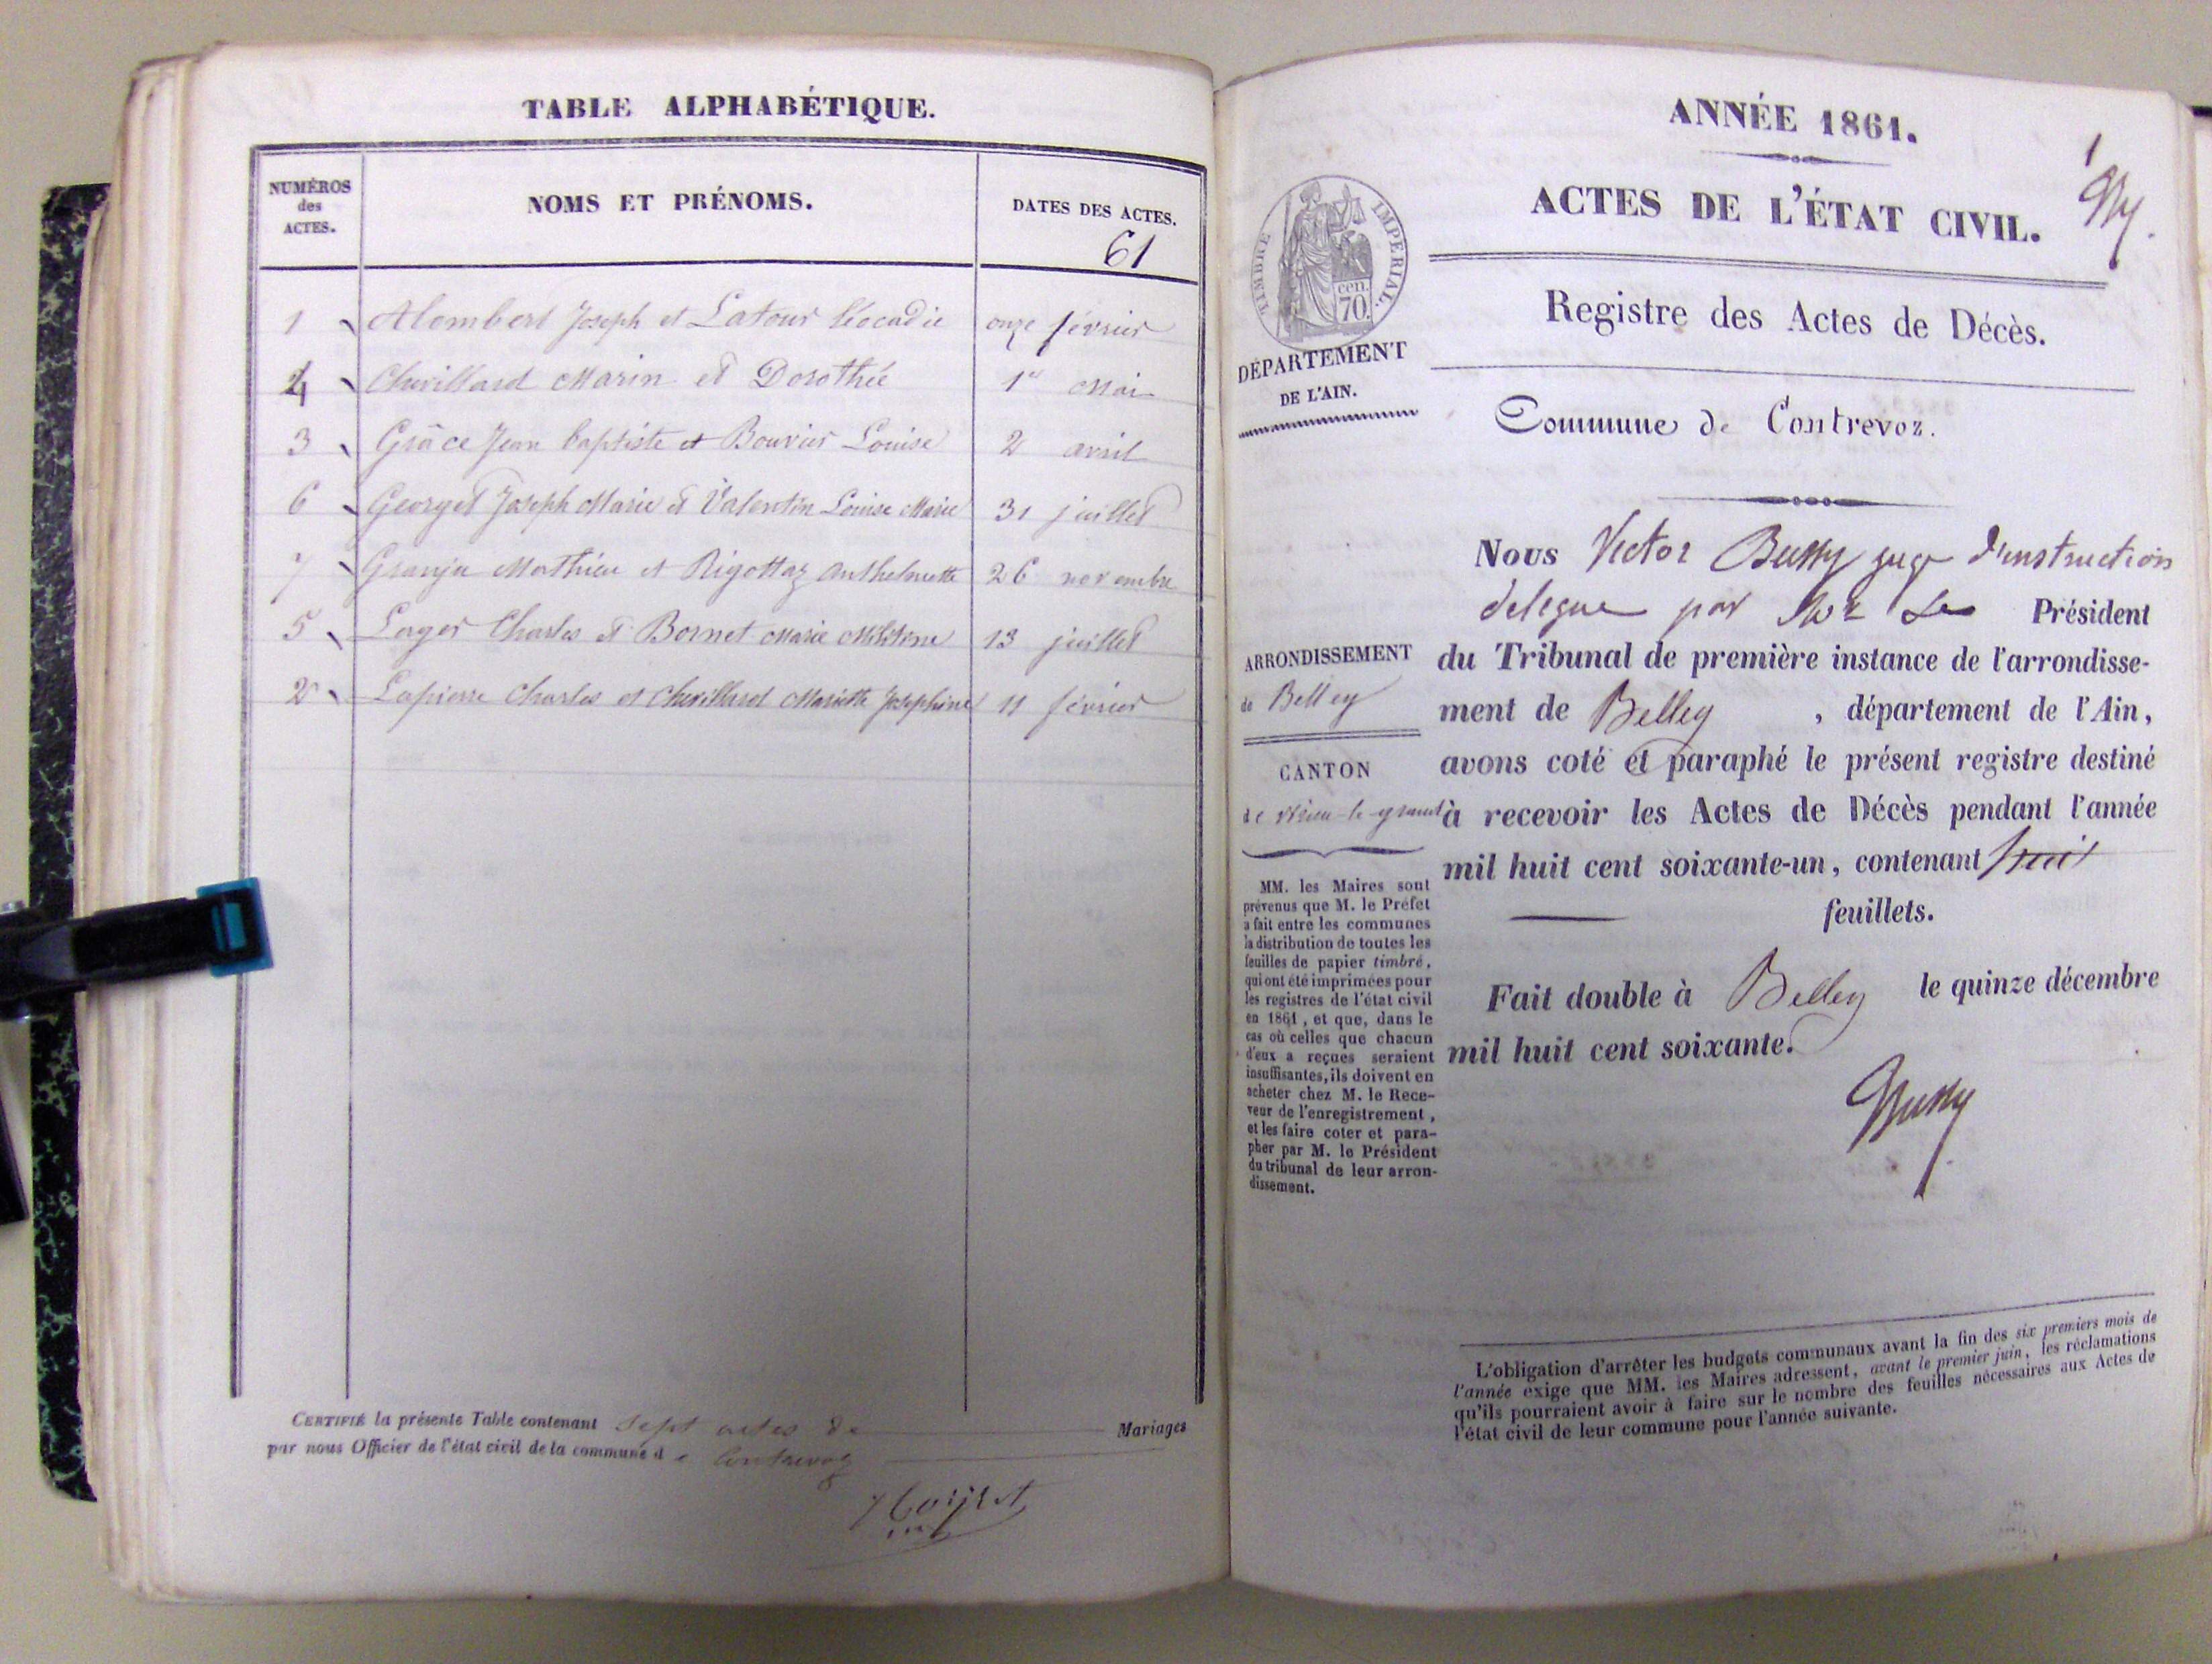 TABLE ALPHABÉTIQUE.
NUMÉROS
des
ACTES.
NOMS ET PRÉNOMS.
DATES DES ACTES.
61
1 Alombert Joseph et Latour Léocadie onze février
4 Chevillard Marin et Dorothée 1er Mai
3 Grâce Jean baptiste et Bouvier Louise 2 avril
6 Georget Joseph Marie et Valentin Louise Marie 31 juillet
7 Granja Mathieu et Rigottaz Anthelmette 26 novembre
5 Loger Charles et Bornet Marie 13 juillet
2 Lapierre Charles et Chevillard Mariette Joséphine 11 février
CERTIFIÉ la présente Table contenant Sept actes de Mariages
par nous Officier de l'état civil de la commune de Contrevoz
ANNÉE 1861.
1
ACTES DE L'ÉTAT CIVIL.
TIMBRE IMPERIAL.
70. cen.
Registre des Actes de Décès.
DÉPARTEMENT
DE L'AIN.
Commune de Contrevoz.
Nous Victor Bussy juge d'instruction
délégué par Mr Le Président
du Tribunal de première instance de l'arrondisse-
ment de Belley, département de l'Ain,
avons coté et paraphé le présent registre destiné
à recevoir les Actes de Décès pendant l'année
mil huit cent soixante-un, contenant huit
feuillets.
Fait double à Belley le quinze décembre
mil huit cent soixante.
Bussy
ARRONDISSEMENT
de Belley
CANTON
de Virieu-le-grand
MM. les Maires sont
prévenus que M. le Préfet
a fait entre les communes
la distribution de toutes les
feuilles de papier timbré,
qui ont été imprimées pour
les registres de l'état civil
en 1861, et que, dans le
cas où celles que chacun
d'eux a reçues seraient
insuffisantes, ils doivent en
acheter chez M. le Rece-
veur de l'enregistrement,
et les faire coter et para-
pher par M. le Président
du tribunal de leur arron-
dissement.
L'obligation d'arrêter les budgets communaux avant la fin des six premiers mois de
l'année exige que MM. les Maires adressent, avant le premier juin, les réclamations
qu'ils pourraient avoir à faire sur le nombre des feuilles nécessaires aux Actes de
l'état civil de leur commune pour l'année suivante.